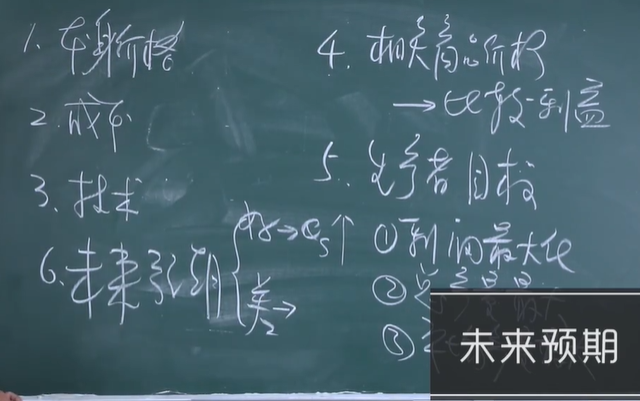 1. 本身价格
2. 成本
3. 技术
6. 未来预期 { 好→Qs↑
差→
4. 相关商品价格
→比较利益
5. 生产者目标
①利润最大化
②
③
未来预期